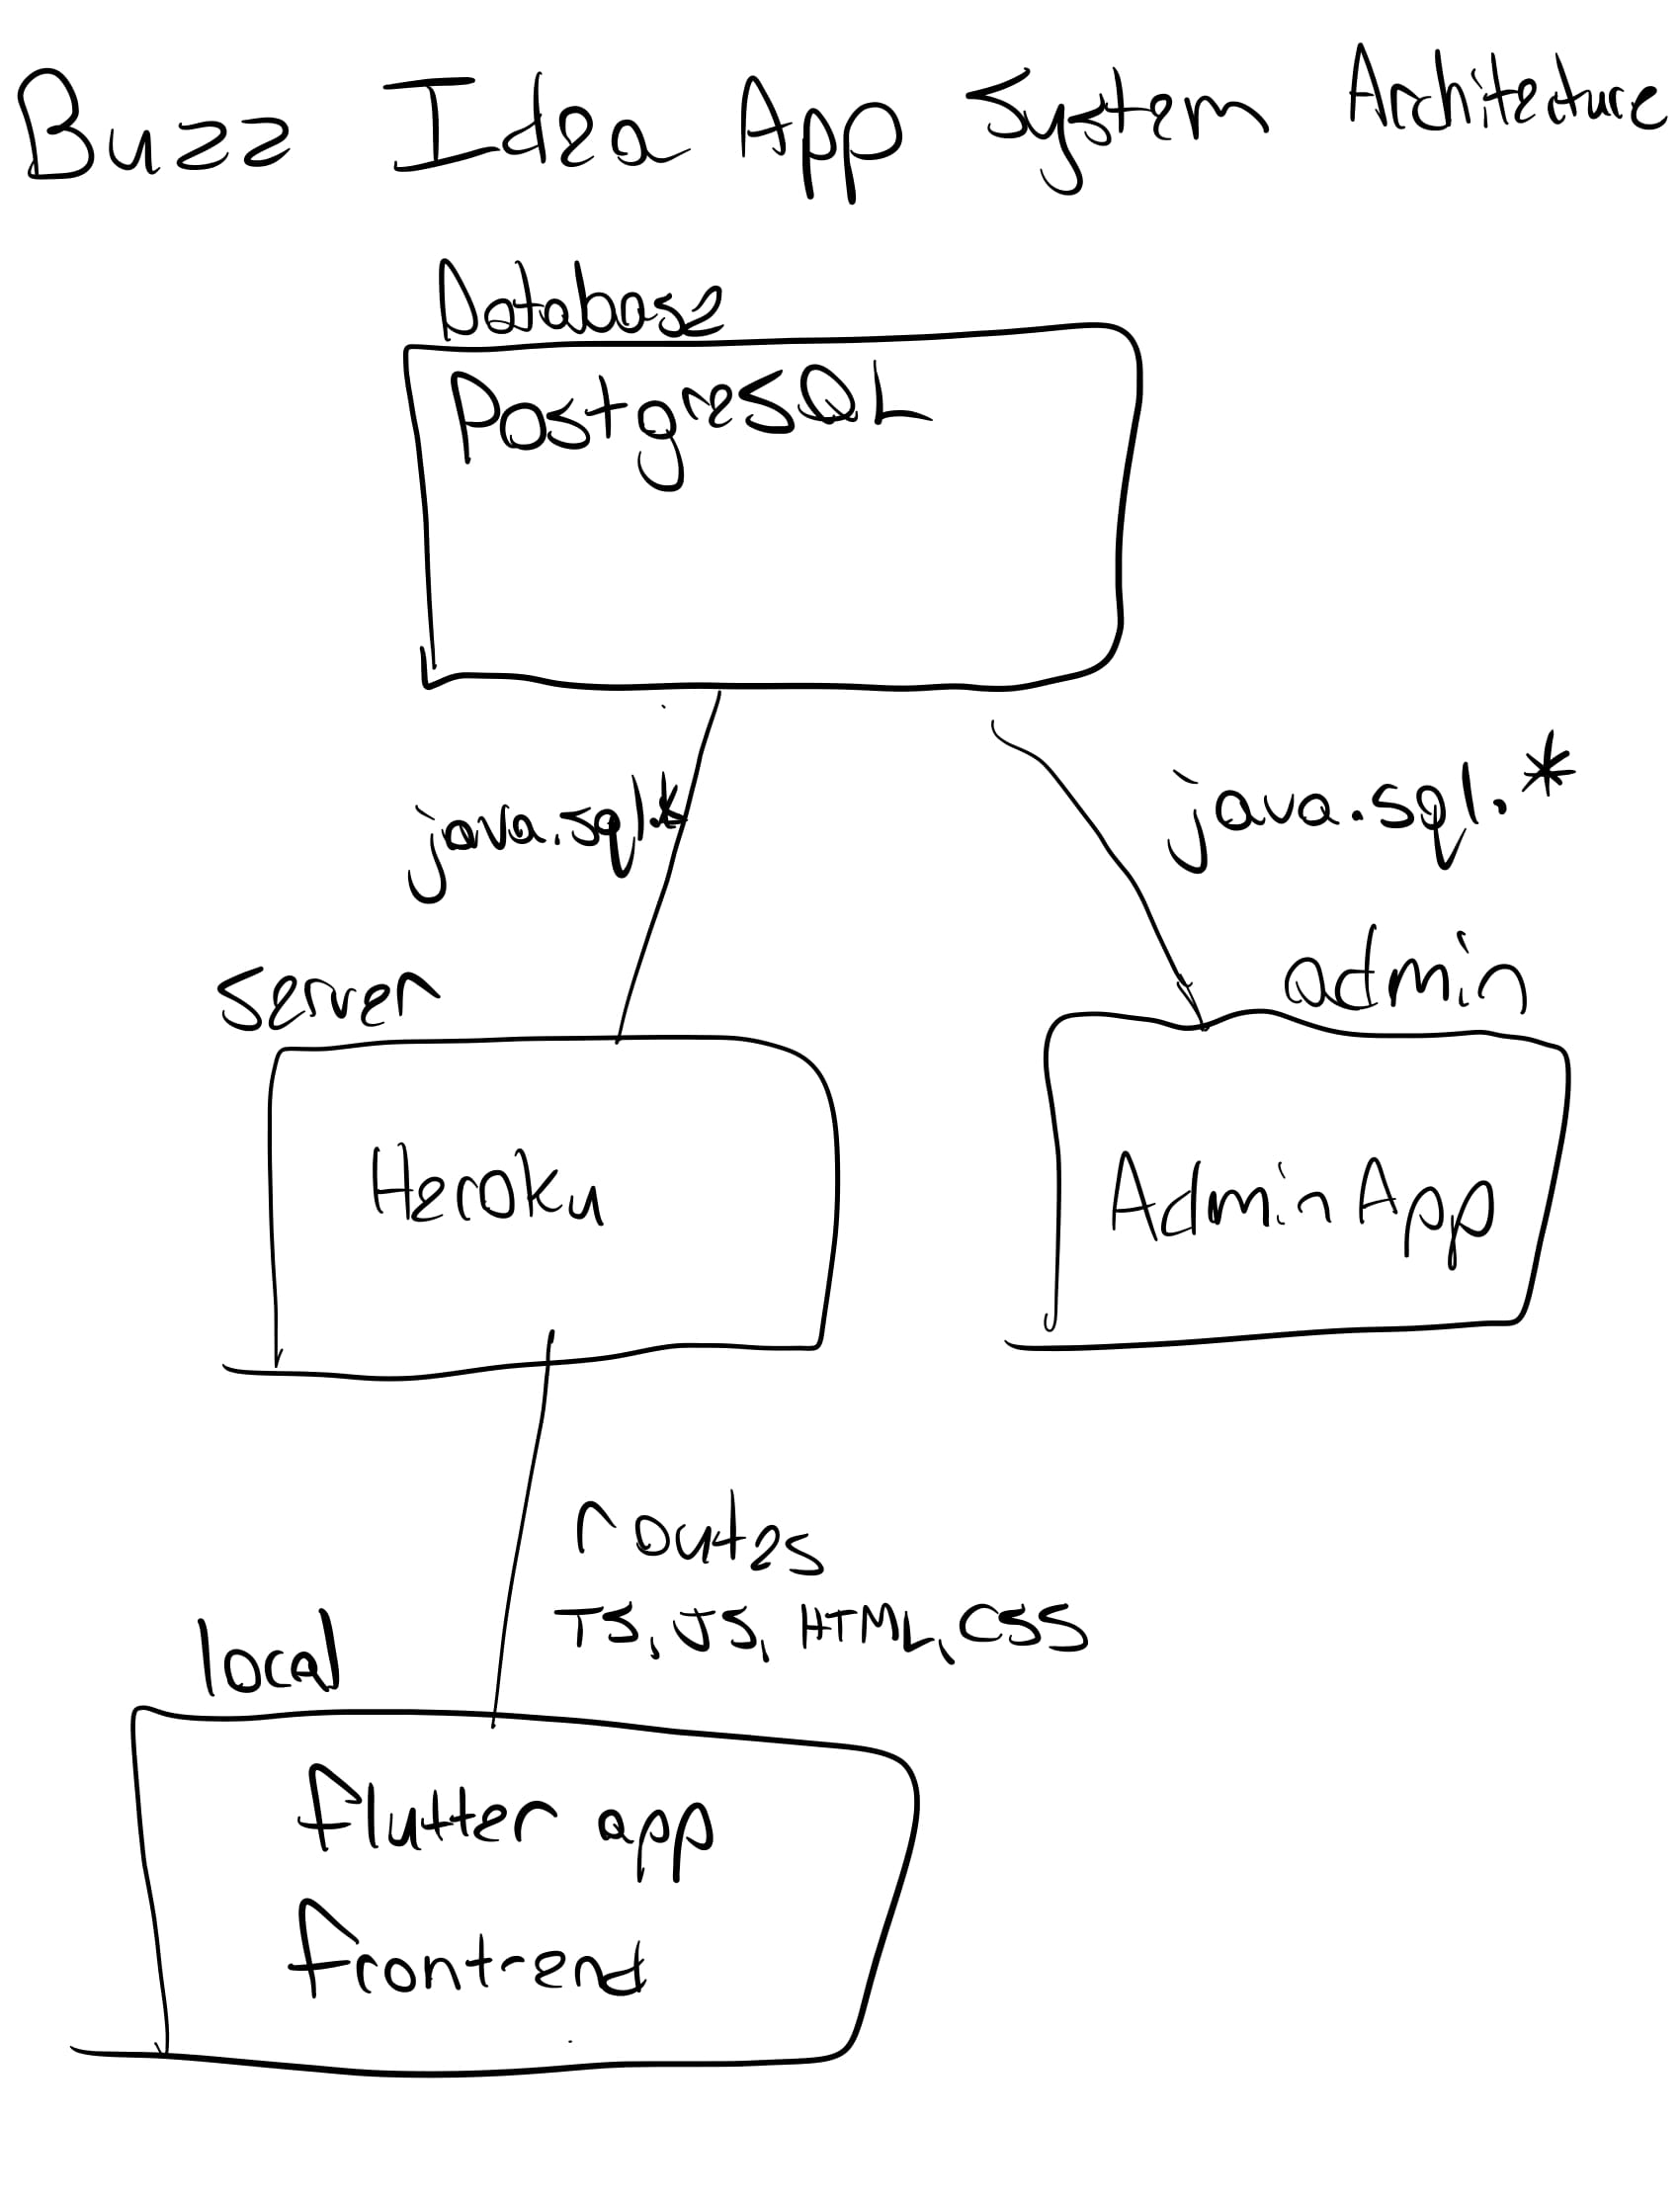 Buzz Idea App System Architecture
Database
PostgreSQL
java.sql.*
java.sql.*
server
admin
Heroku
Admin App
routes
TS, JS, HTML, CSS
local
flutter app
frontend